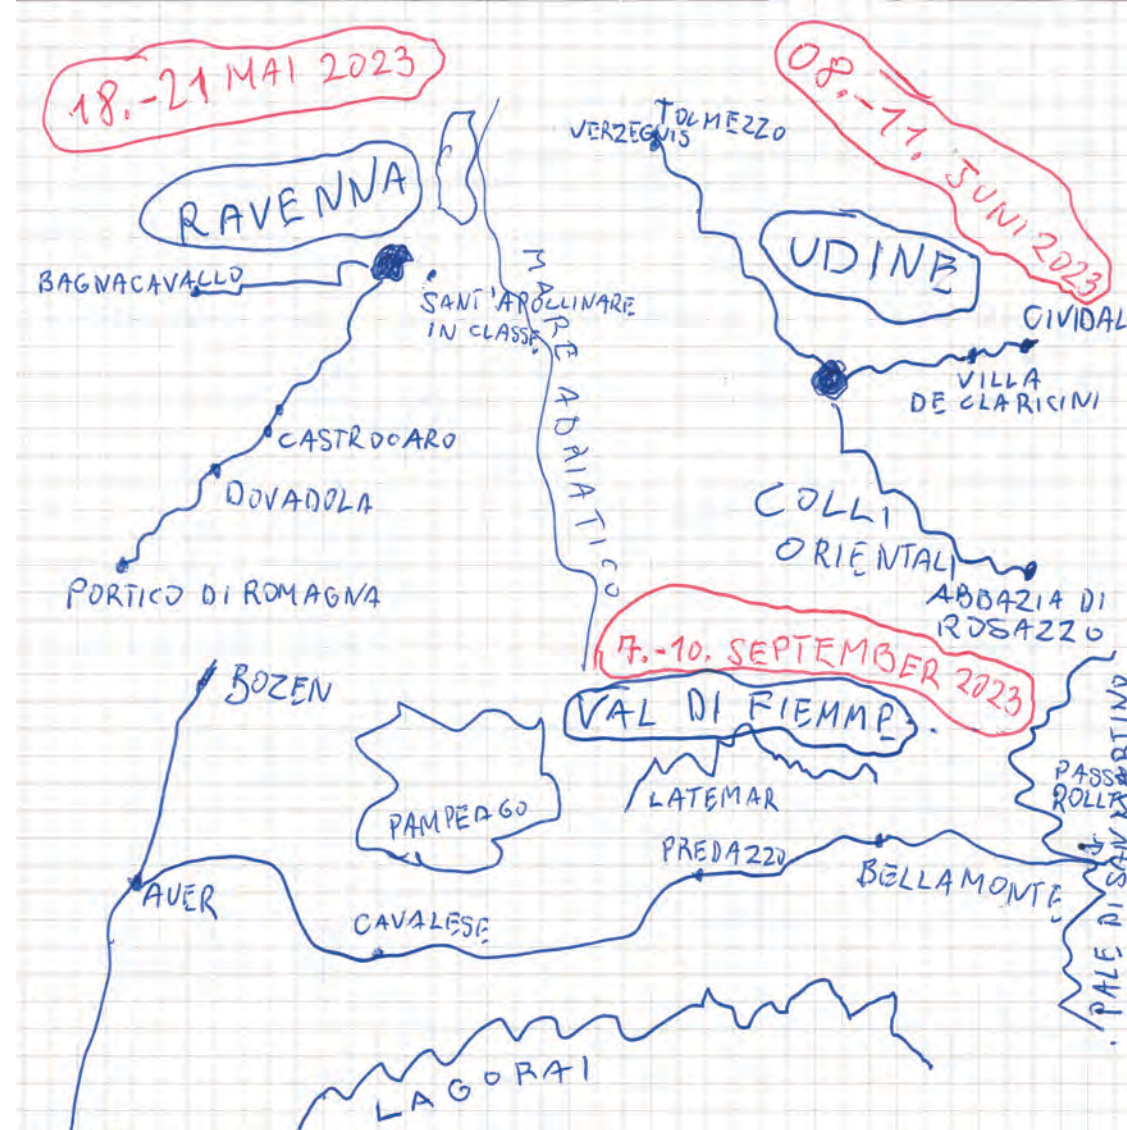 18.-21 MAI 2023
RAVENNA
BAGNACAVALLO
SANT'APOLLINARE
IN CLASSE
CASTROCARO
DOVADOLA
PORTICO DI ROMAGNA
MARE ADRIATICO
08.-11. JUNI 2023
TOLMEZZO
VERZEGNIS
UDINE
CIVIDAL
VILLA
DE CLARICINI
COLLI
ORIENTALI
ABBAZIA DI
ROSAZZO
7.-10. SEPTEMBER 2023
VAL DI FIEMME
BOZEN
PAMPEAGO
LATEMAR
PASSO
ROLLE
PREDAZZO
BELLAMONTE
AUER
CAVALESE
PALE DI SAN MARTINO
LAGORAI